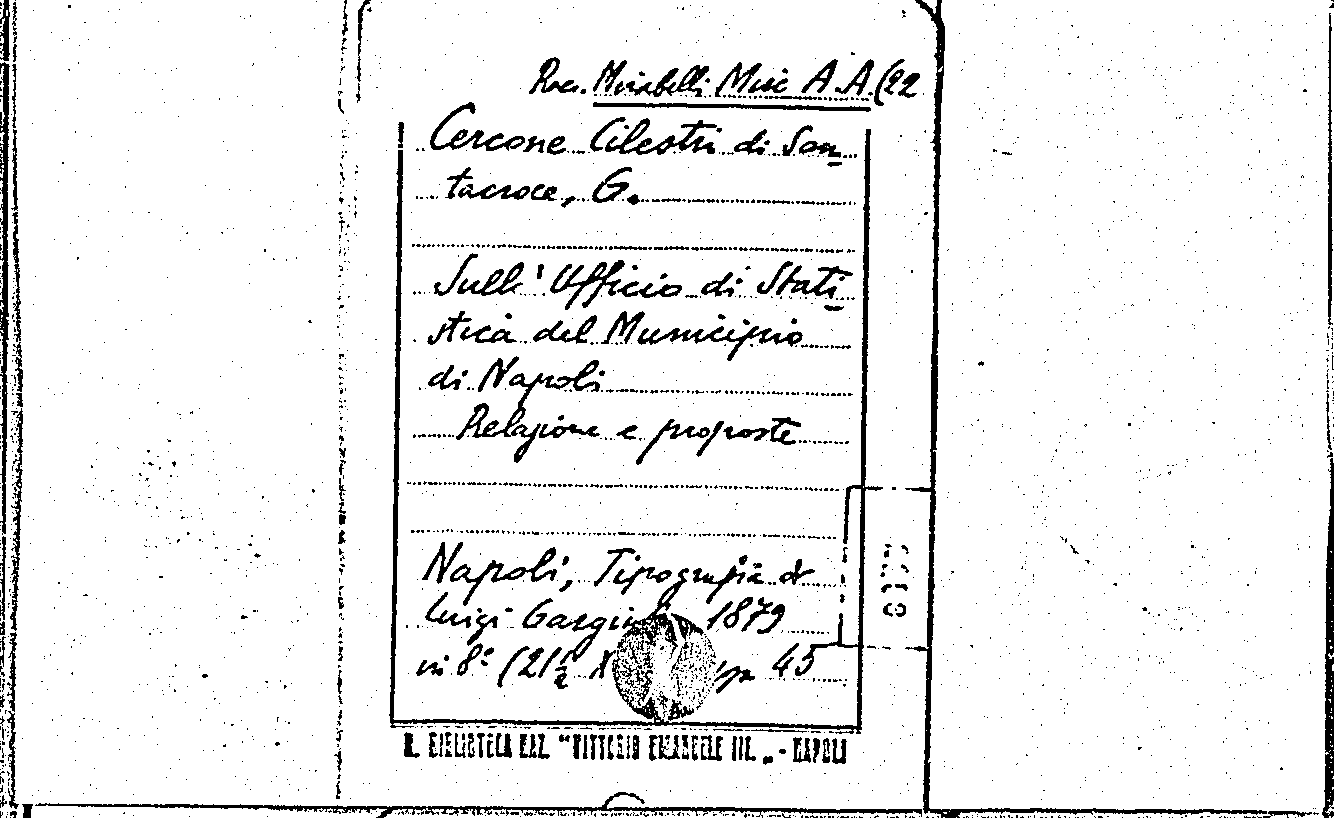 Racc. Mirabelli Misc A.A (22
Cercone Cilestri di San-
tacroce, G.
Sull' Ufficio di Stati-
stica del Municipio
di Napoli
Relazione e proposte
Napoli, Tipografia di
Luigi Gargiulo 1879
in 8° (21½ X pp 45
R. BIBLIOTECA NAZ. "VITTORIO EMANUELE III." - NAPOLI